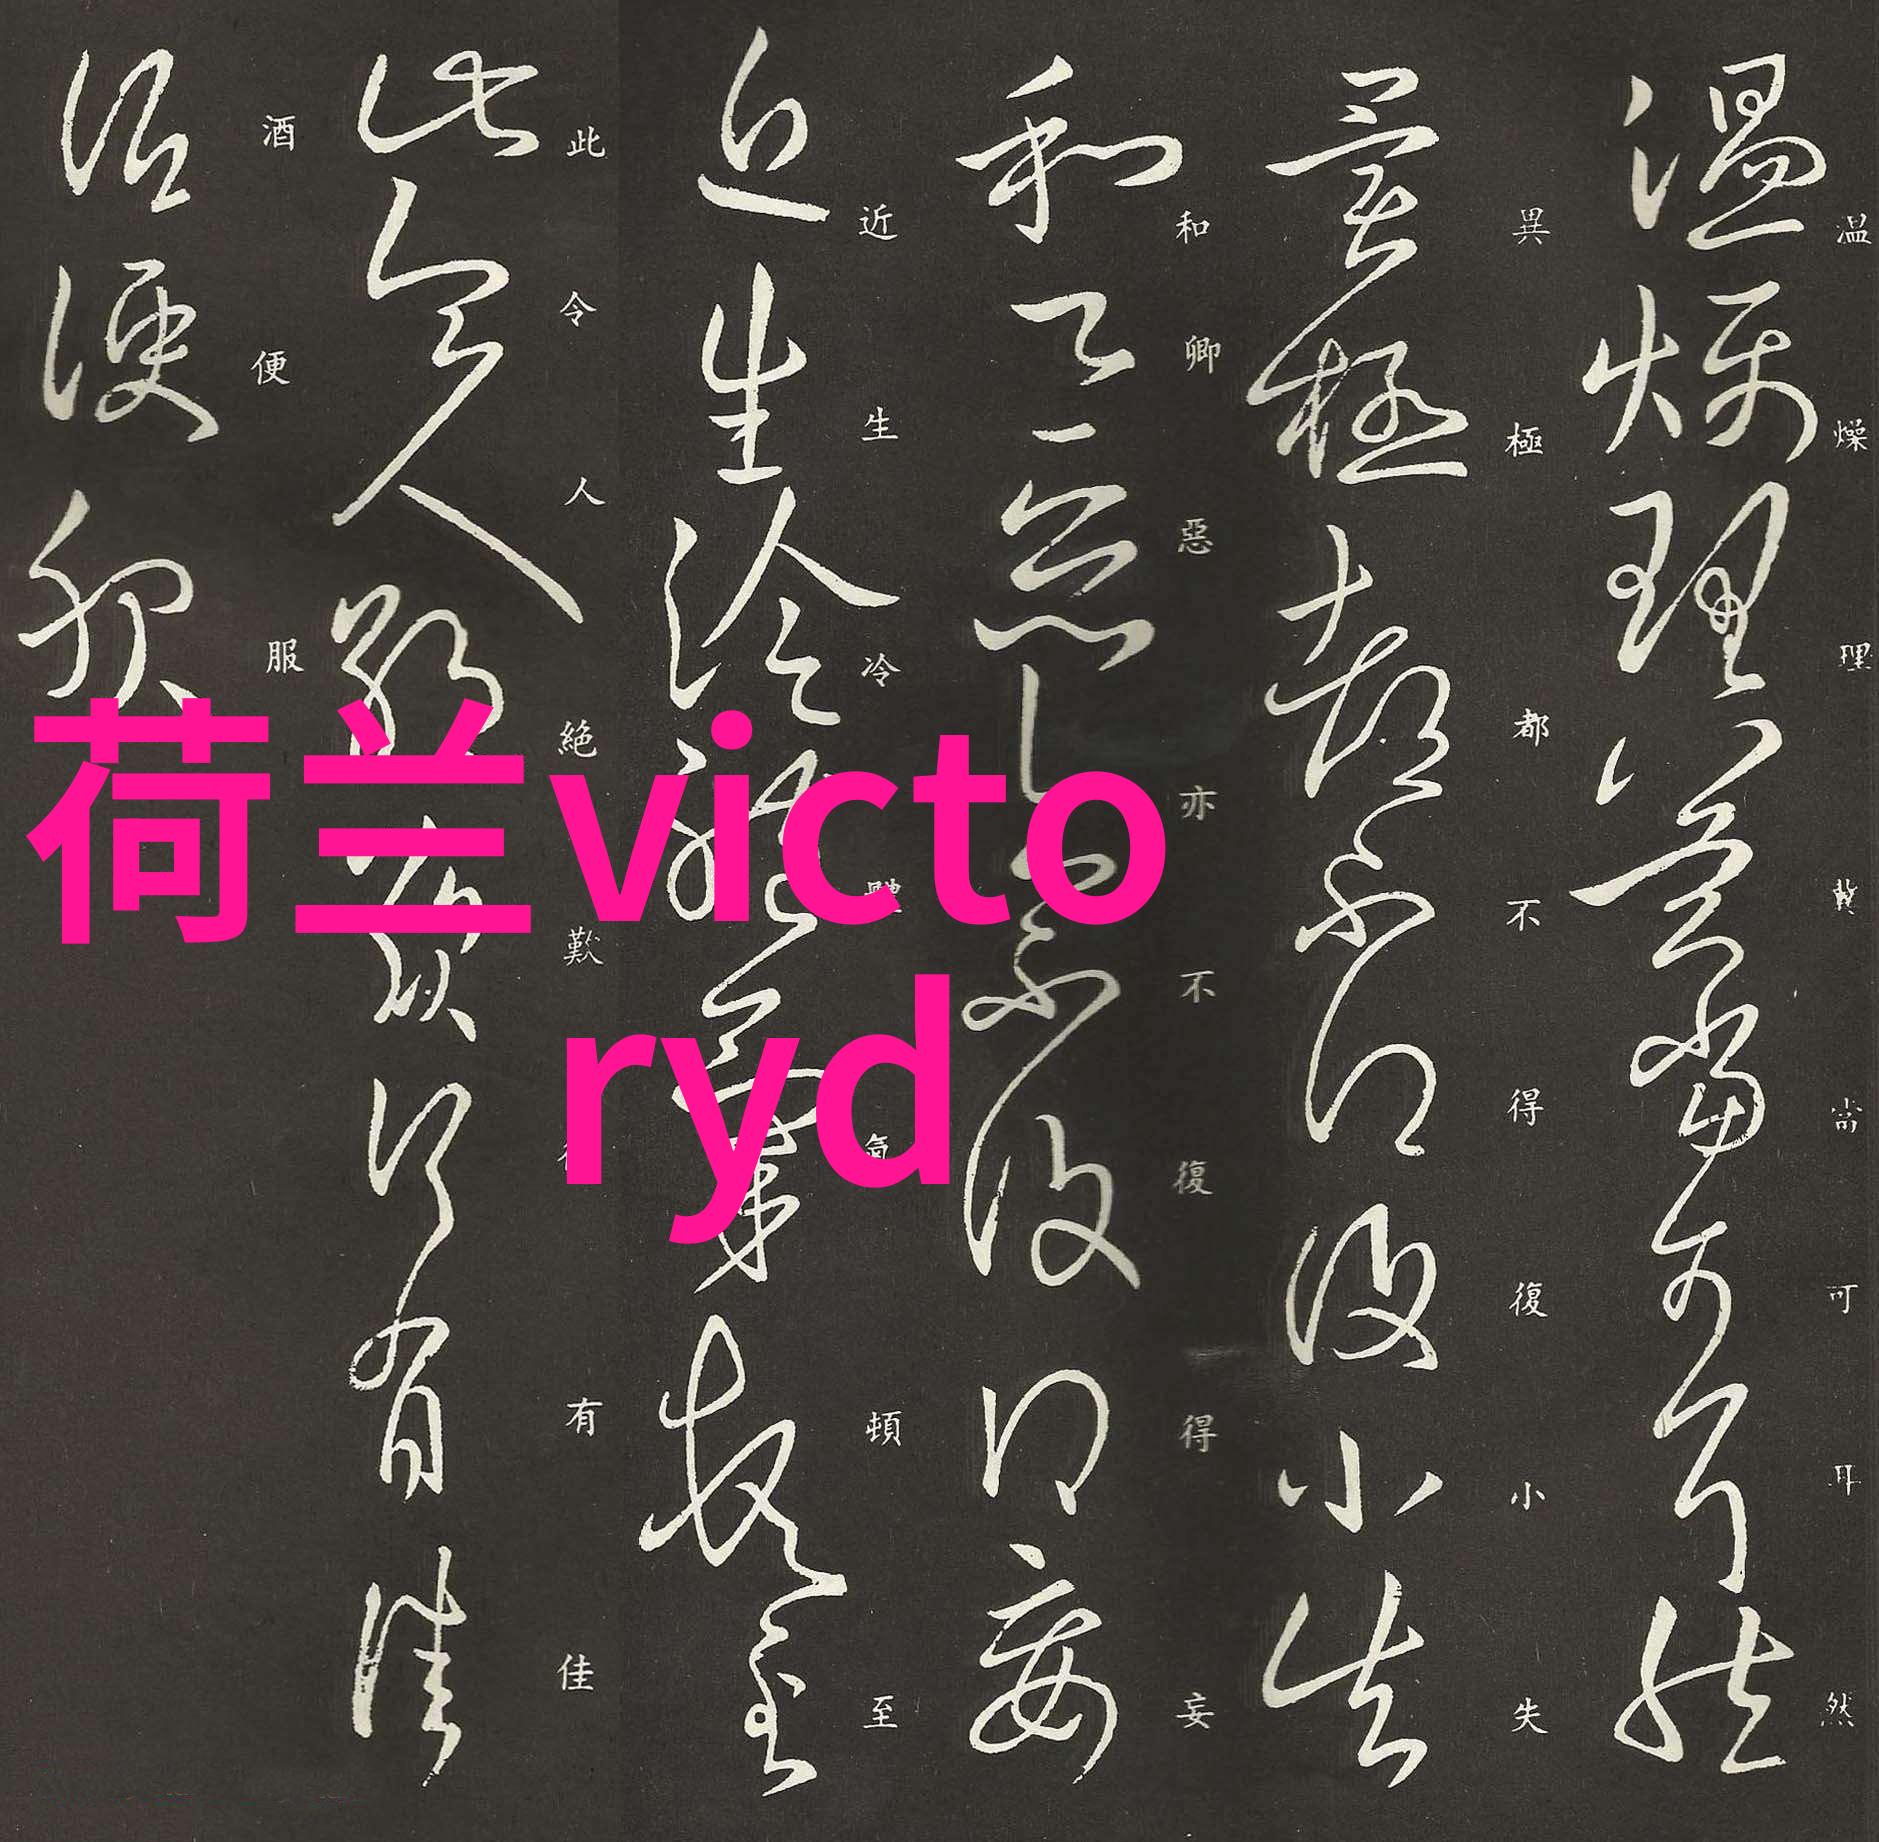 温燥理冀當可耳然
異極都不得復小失
和卿惡亦不復得妄
近生冷體氣頓至
此令人絕歎有佳
酒便服
荷兰victo
ryd